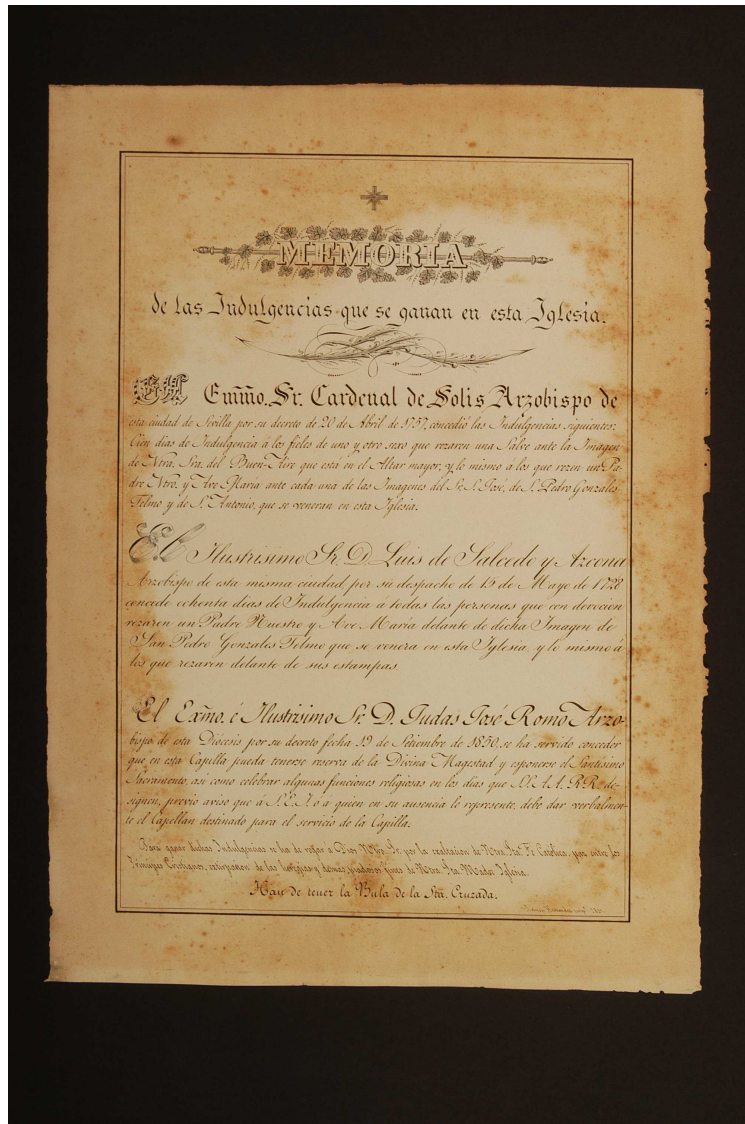 MEMORIA
de las Indulgencias que se ganan en esta Iglesia.
El Emmo. Sr. Cardenal de Solis Arzobispo de
esta ciudad de Sevilla por su decreto de 20 de Abril de 1757, concedió las Indulgencias siguientes:
Cien dias de Indulgencia á los fieles de uno y otro sexo que rezaren una Salve ante la Imagen
de Ntra. Sra. del Buen-Aire que está en el Altar mayor, y lo mismo á los que rezen un Pa-
dre Ntro. y Ave María ante cada una de las Imagenes del Sr. S. José, de S. Pedro Gonzales
Telmo y de S. Antonio, que se veneran en esta Iglesia.
El Ilustrisimo Sr. D. Luis de Salcedo y Azcona
Arzobispo de esta misma ciudad por su despacho de 15 de Mayo de 1728
concede ochenta dias de Indulgencia á todas las personas que con devocion
rezaren un Padre Nuestro y Ave María delante de dicha Imagen de
San Pedro Gonzales Telmo que se venera en esta Iglesia, y lo mismo á
los que rezaren delante de sus estampas.
El Exmo. é Ilustrisimo Sr. D. Judas José Romo Arzo-
bispo de esta Diócesis por su decreto fecha 19 de Setiembre de 1850, se ha servido conceder
que en esta Capilla pueda tenerse reserva de la Divina Magestad y esponerse el Santisimo
Sacramento, asi como celebrar algunas funciones religiosas en los dias que SS. A. A. R. R. de-
signen, previo aviso que á S. E. I. o a quien en su ausencia le represente, debe dar verbalmen-
te el Capellan destinado para el servicio de la Capilla.
Para ganar dichas Indulgencias se ha de rogar a Dios Ntro. Sr. por la exaltacion de Ntra. Sta. Fé Católica, paz entre los
Principes Cristianos, extirpacion de las heregias y demas piadosos fines de Ntra. Sta. Madre Iglesia.
Han de tener la Bula de la Sta. Cruzada.